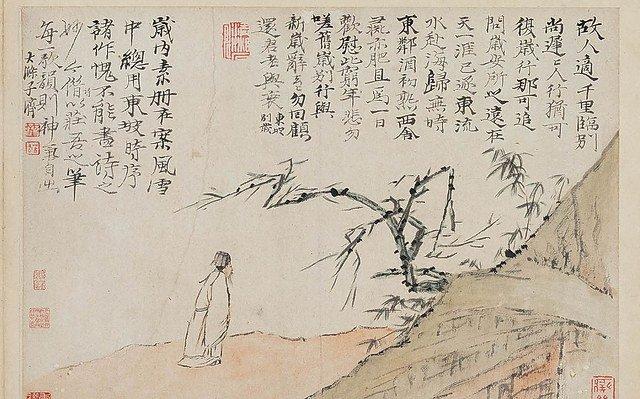 故人適千里臨別
尚遲々人行猶可
復歲行那可追
問歲安所之遠在
天一涯已逐東流
水赴海歸無時
東鄰酒初熟西舍
彘亦肥且為一日
歡慰此窮年悲勿
嗟舊歲別行與
新歲辭去々勿回顧
還君老與衰 東坡別歲
歲內素冊在案風雪
中總用東坡時序
諸作愧不能盡詩之
妙 借以莊吾之筆
每一歌頌則神氣自出
大滌子濟